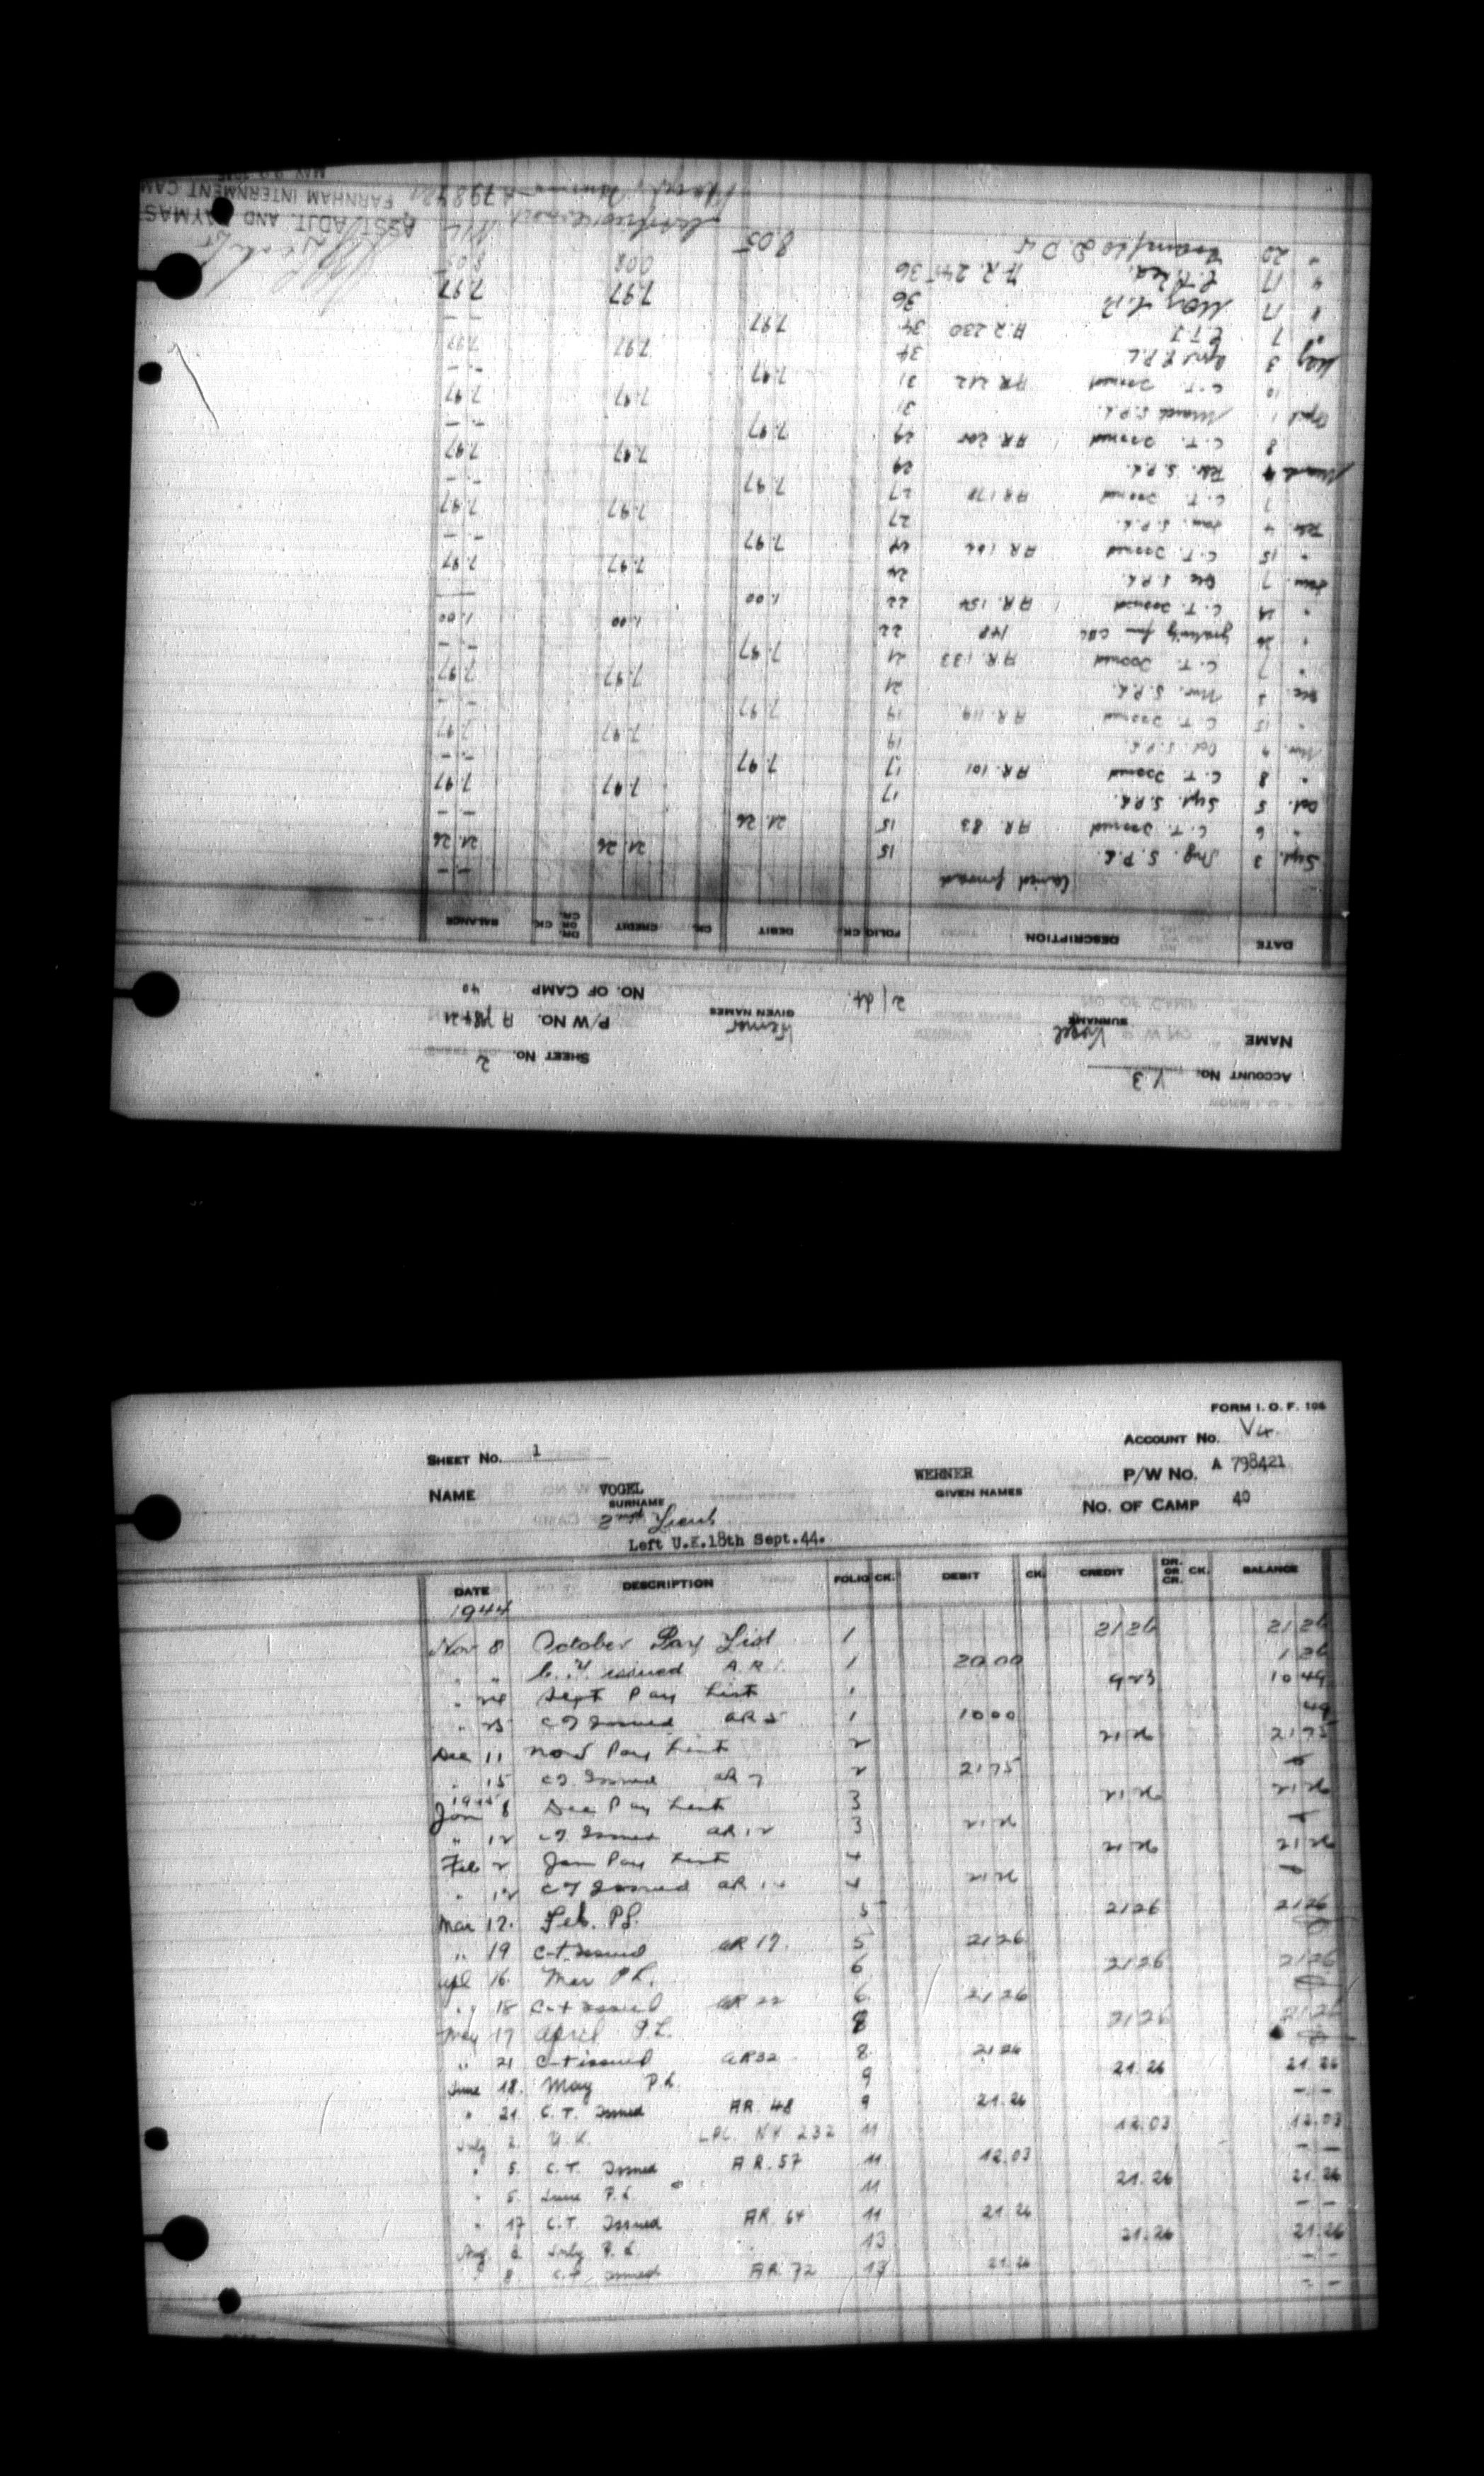 FORM I. O. F. 106
ACCOUNT No. V4
SHEET No. 1
P/W No. A 798421
NAME VOGEL WERNER
SURNAME GIVEN NAMES
No. OF CAMP 40
2nd Lieut
Left U.K.18th Sept.44.
DATE DESCRIPTION FOLIO CK. DEBIT CK. CREDIT DR. OR CR. CK. BALANCE
1944
Nov 8 October Pay List 1 2126 2126
" " C.T. issued AR 1. 1 2000 126
" 24 Sept Pay List 1 923 1049
" 25 CT Issued AR 5 1 1000 49
Dec 11 Nov Pay List 2 2126 2175
" 15 CT Issued AR 7 2 2175
1945
Jan 8 Dec Pay List 3 2126 2126
" 12 CT Issued AR 12 3 2126
Feb 2 Jan Pay List 4 2126 2126
" 12 CT Issued AR 4 2126
Mar 12. Feb. P.L. 5 2126 2126
" 19 C-t Issued AR 17. 5 2126
Apl 16. Mar P.L. 6 2126 2126
" 18 C-t issued AR 22 6. 2126
May 17 April P.L. 8 2126 2126
" 21 C-t issued AR32 8. 2126
June 18. May P.L. 9 21.26 21.26
" 21 C.T. Issued AR. 48 9 21.26 - -
July 2. U.K. LPC. NY 232 11 12.03 12.03
" 5. C.T. Issued A R. 57 11 12.03 - -
" 5. June P.L. 11 21.26 21.26
" 17 C.T. Issued AR. 64 11 21.26 - -
Aug 2. July P.L. 13 21.26 21.26
" 8. C.T. Issued AR. 72 13 21.26 - -
- -
ACCOUNT No. V 3 SHEET No. 2
NAME Vogel Werner P/W No. A 798421
SURNAME GIVEN NAMES
2/Lt. No. OF CAMP 40
DATE DESCRIPTION FOLIO CK. DEBIT CK. CREDIT DR. OR CR. CK. BALANCE
Carried forward - -
Sept. 3 Aug. S.P.L. 15 21.26 21.26
" 6 C.T. Issued AR. 83 15 21.26 - -
Oct. 5 Sept. S.P.L. 17 7.97 7.97
" 8 C.T. Issued AR. 101 17 7.97 - -
Nov. 9 Oct. S.P.L. 19 7.97 7.97
" 15 C.T. Issued AR. 119 19 7.97 - -
Dec. 3 Nov. S.P.L. 21 7.97 7.97
" 7 C.T. Issued AR. 133 21 7.97 - -
" 20 gratuity from 148 22 1.00 1.00
" 24 C.T. Issued AR. 154 22 1.00
Jan. 7 Dec S.P.L. 24 7.97 7.97
" 15 C.T. Issued AR 166 24 7.97 - -
Feb. 4 Jan. S.P.L. 27 7.97 7.97
7 C.T. Issued AR 178 27 7.97 - -
March 4 Febr. S.P.L. 29 7.97 7.97
8 C.T. Issued AR. 205 29 7.97 - -
April 1 March S.P.L. 31 7.97 7.97
10 C.T. Issued AR 212 31 7.97 - -
May 3 April P.P.L. 34 7.97 7.97
" 7 C.T.I. A.R 230 34 7.97 - -
" 17 May 36 7.97 7.97
" 17 A.R. 245 36 0.08 8.05
" 20 8.05
A798421
ASST/ADJT. AND PAYMAS
FARNHAM INTERNMENT CAM